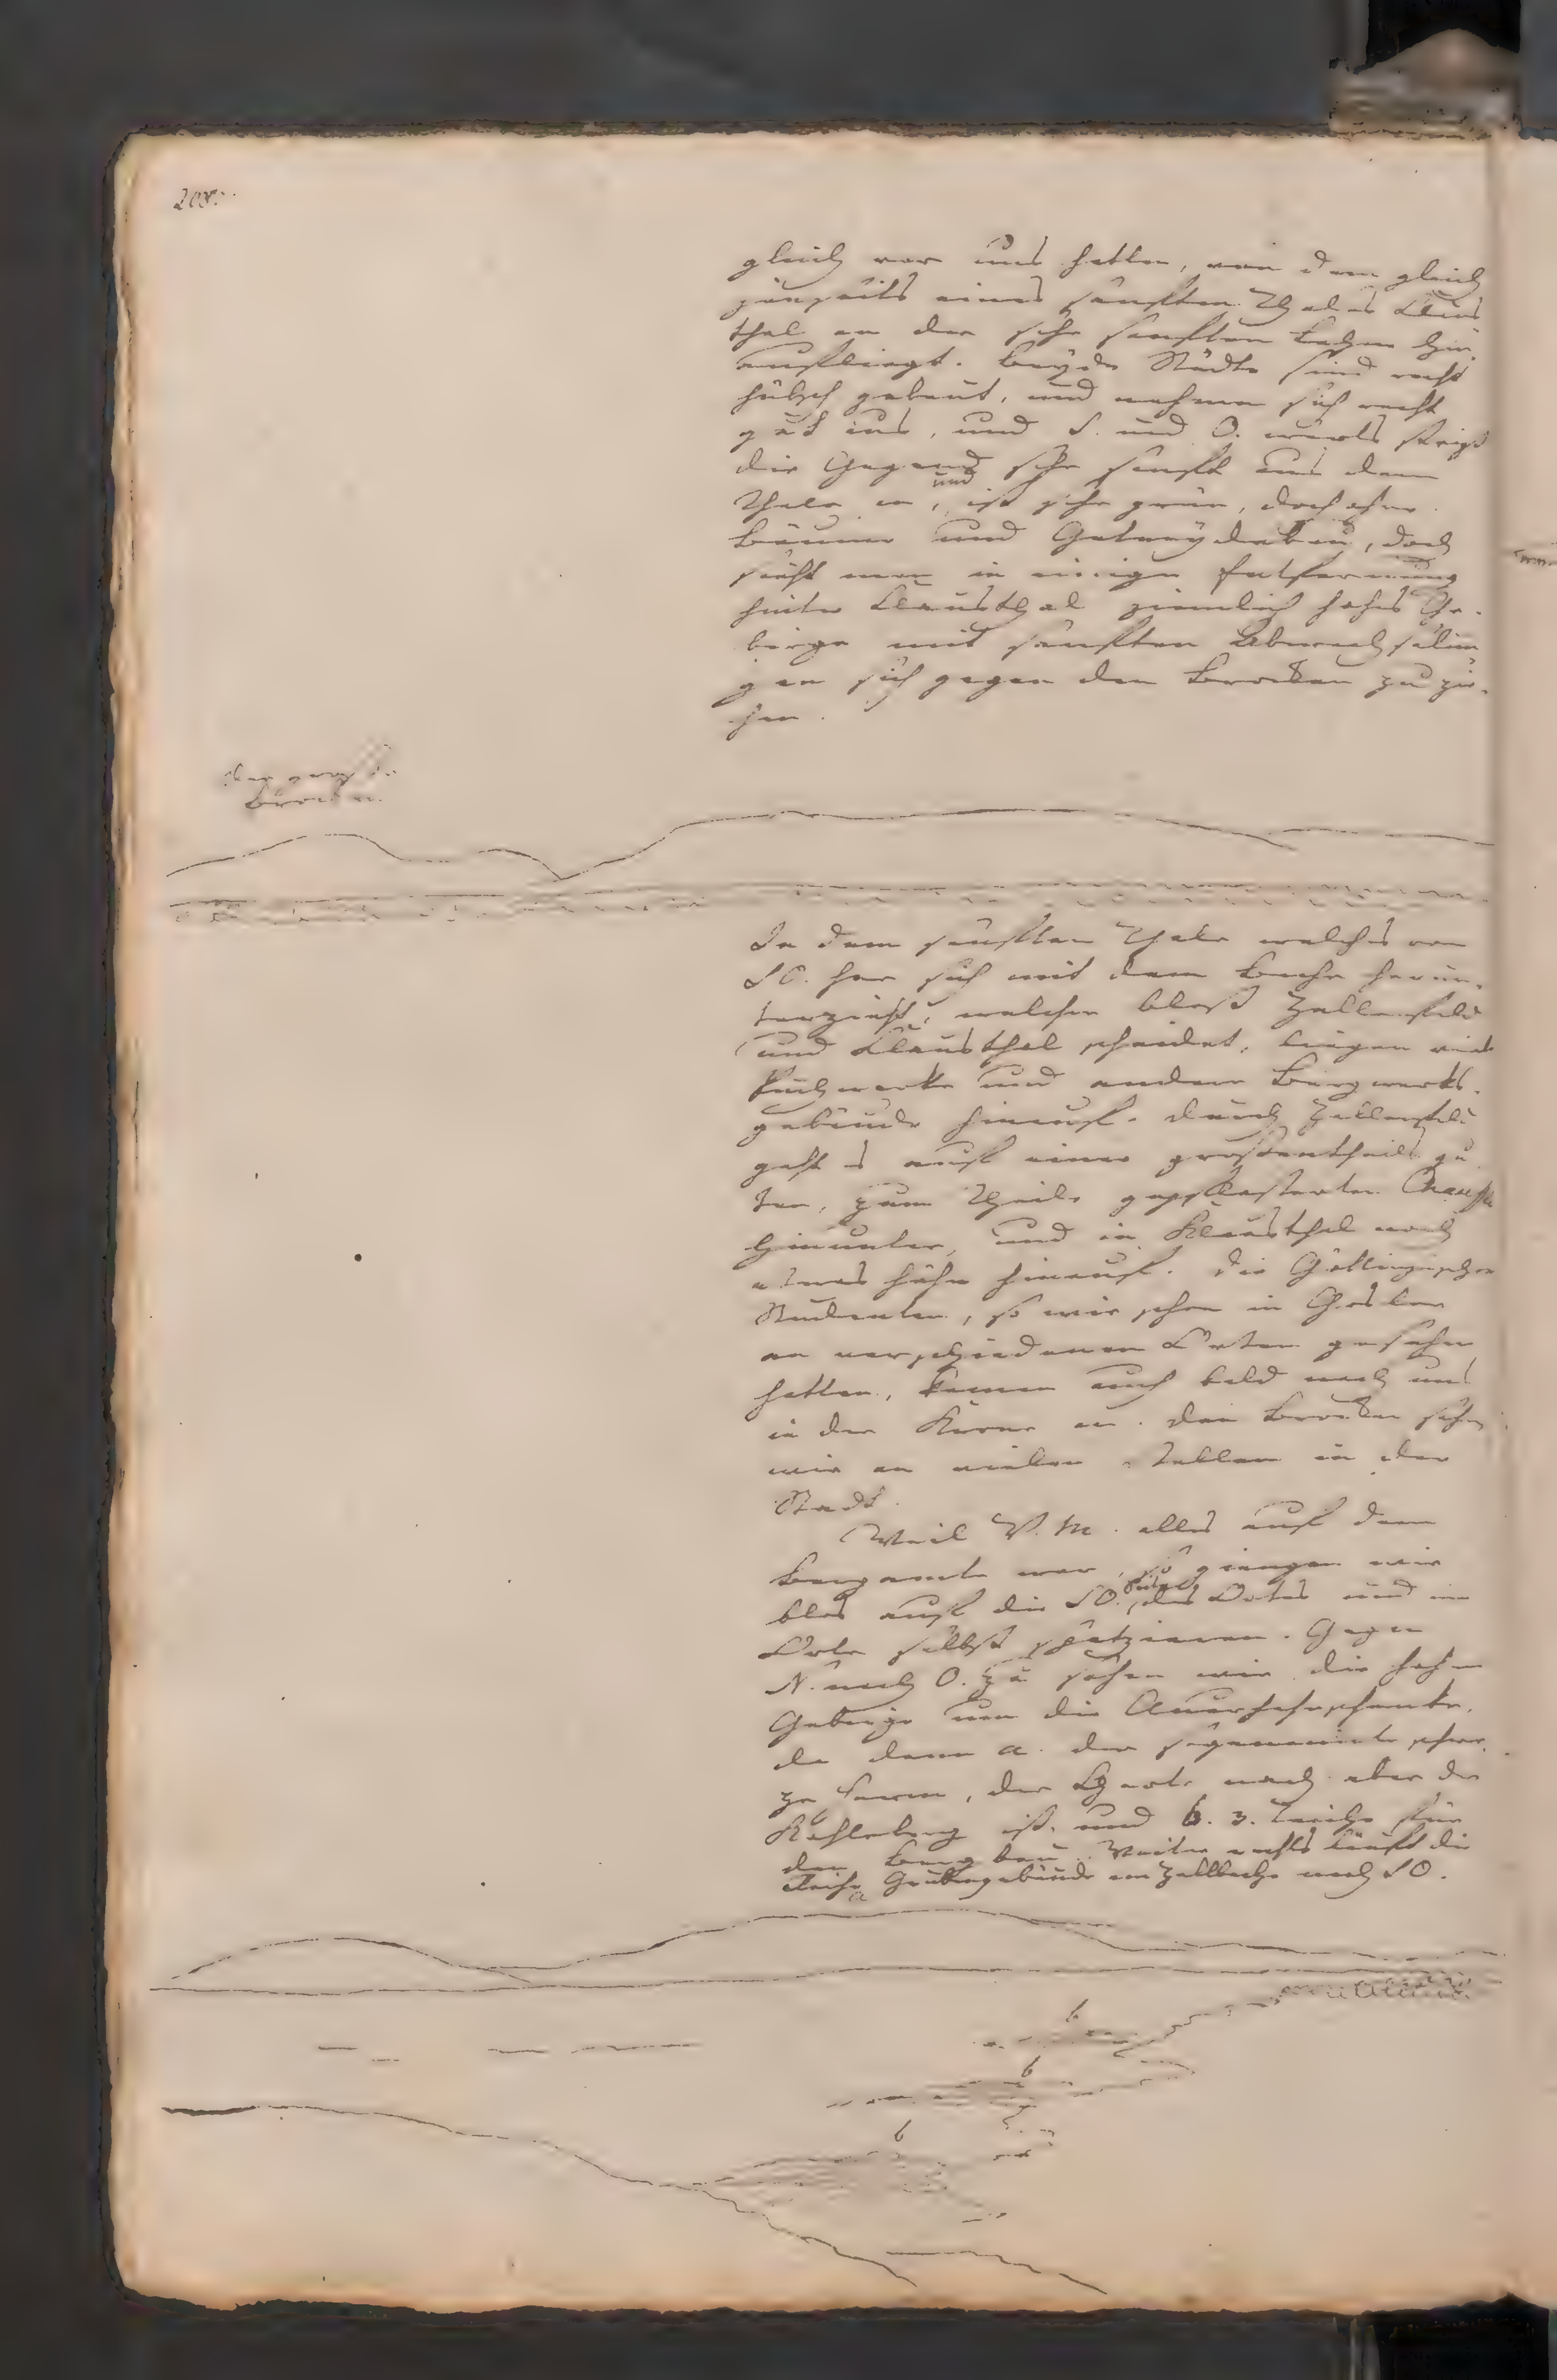 208.
gleich vor uns hatten, von dem gleich
jenseits eines sanften Thales Claus
thal an der sehr sanften Höhe hin
aufliegt. Beyde Städte sind recht
hübsch gebaut, und nehmen sich recht
gut aus, und S. und O. wärts steigt
die Gegend sehr sanft aus dem
Thale an, und ist sehr grün, doch ohne
Bäume und Getreydebau, doch
sieht man in einiger Entfernung
hinter Clausthal ziemlich hohes Ge-
birge mit sanften Abwechselun
gen sich gegen den Brocken zu zie-
hen.
der große
Brocken.
In dem sanften Thale welches von
SO. her sich mit dem Bache herun-
terzieht, welcher blos Zellerfeld
und Clausthal scheidet, liegen viele
Puchwerke und andere Bergwerks-
gebäude hinauf. Durch Zellerfeld
geht es auf einer größtentheils gu
ten, zum Theile gepflasterten Chaussee
hinunter, und in Klausthal noch
etwas höher hinauf. Die Göttingischen
Studenten, so wir schon in Goslar
an verschiedenen Orten gesehen
hatten, kamen auch bald nach uns
in der Krone an. Den Brocken sahen
wir an vielen Stellen in der
Stadt.
Weil V. M. alles auf dem
Bergamte war, so giengen wir
blos auf die SO. Seite des Ortes und im
Orte selbst spatzieren. Gegen
N. nach O. zu sahen wir die hohen
Gebirge um die Auerhahnschenke,
da denn a. der sogenannte
der nach aber der
Kahleberg ist, und b. 3. Teiche für
den Bergbau. Weiter rechts läuft die
Reihe Grubengebäude am Zellbache nach SO.
a
b
b
b